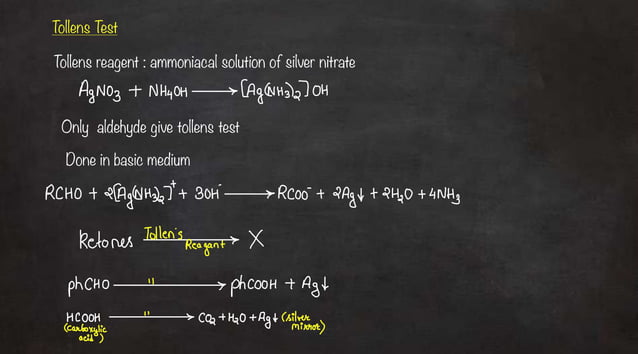 Tollens Test
Tollens reagent : ammoniacal solution of silver nitrate
AgNO3 + NH4OH ⟶ [Ag(NH3)2] OH
Only aldehyde give tollens test
Done in basic medium
RCHO + 2[Ag(NH3)2]+ + 3OH- ⟶ RCOO- + 2Ag↓ + 2H2O + 4NH3
Ketones Tollen's Reagant ⟶ X
phCHO " ⟶ phCOOH + Ag↓
HCOOH " ⟶ CO2 + H2O + Ag↓ (silver mirrot)
(carboxylic acid')